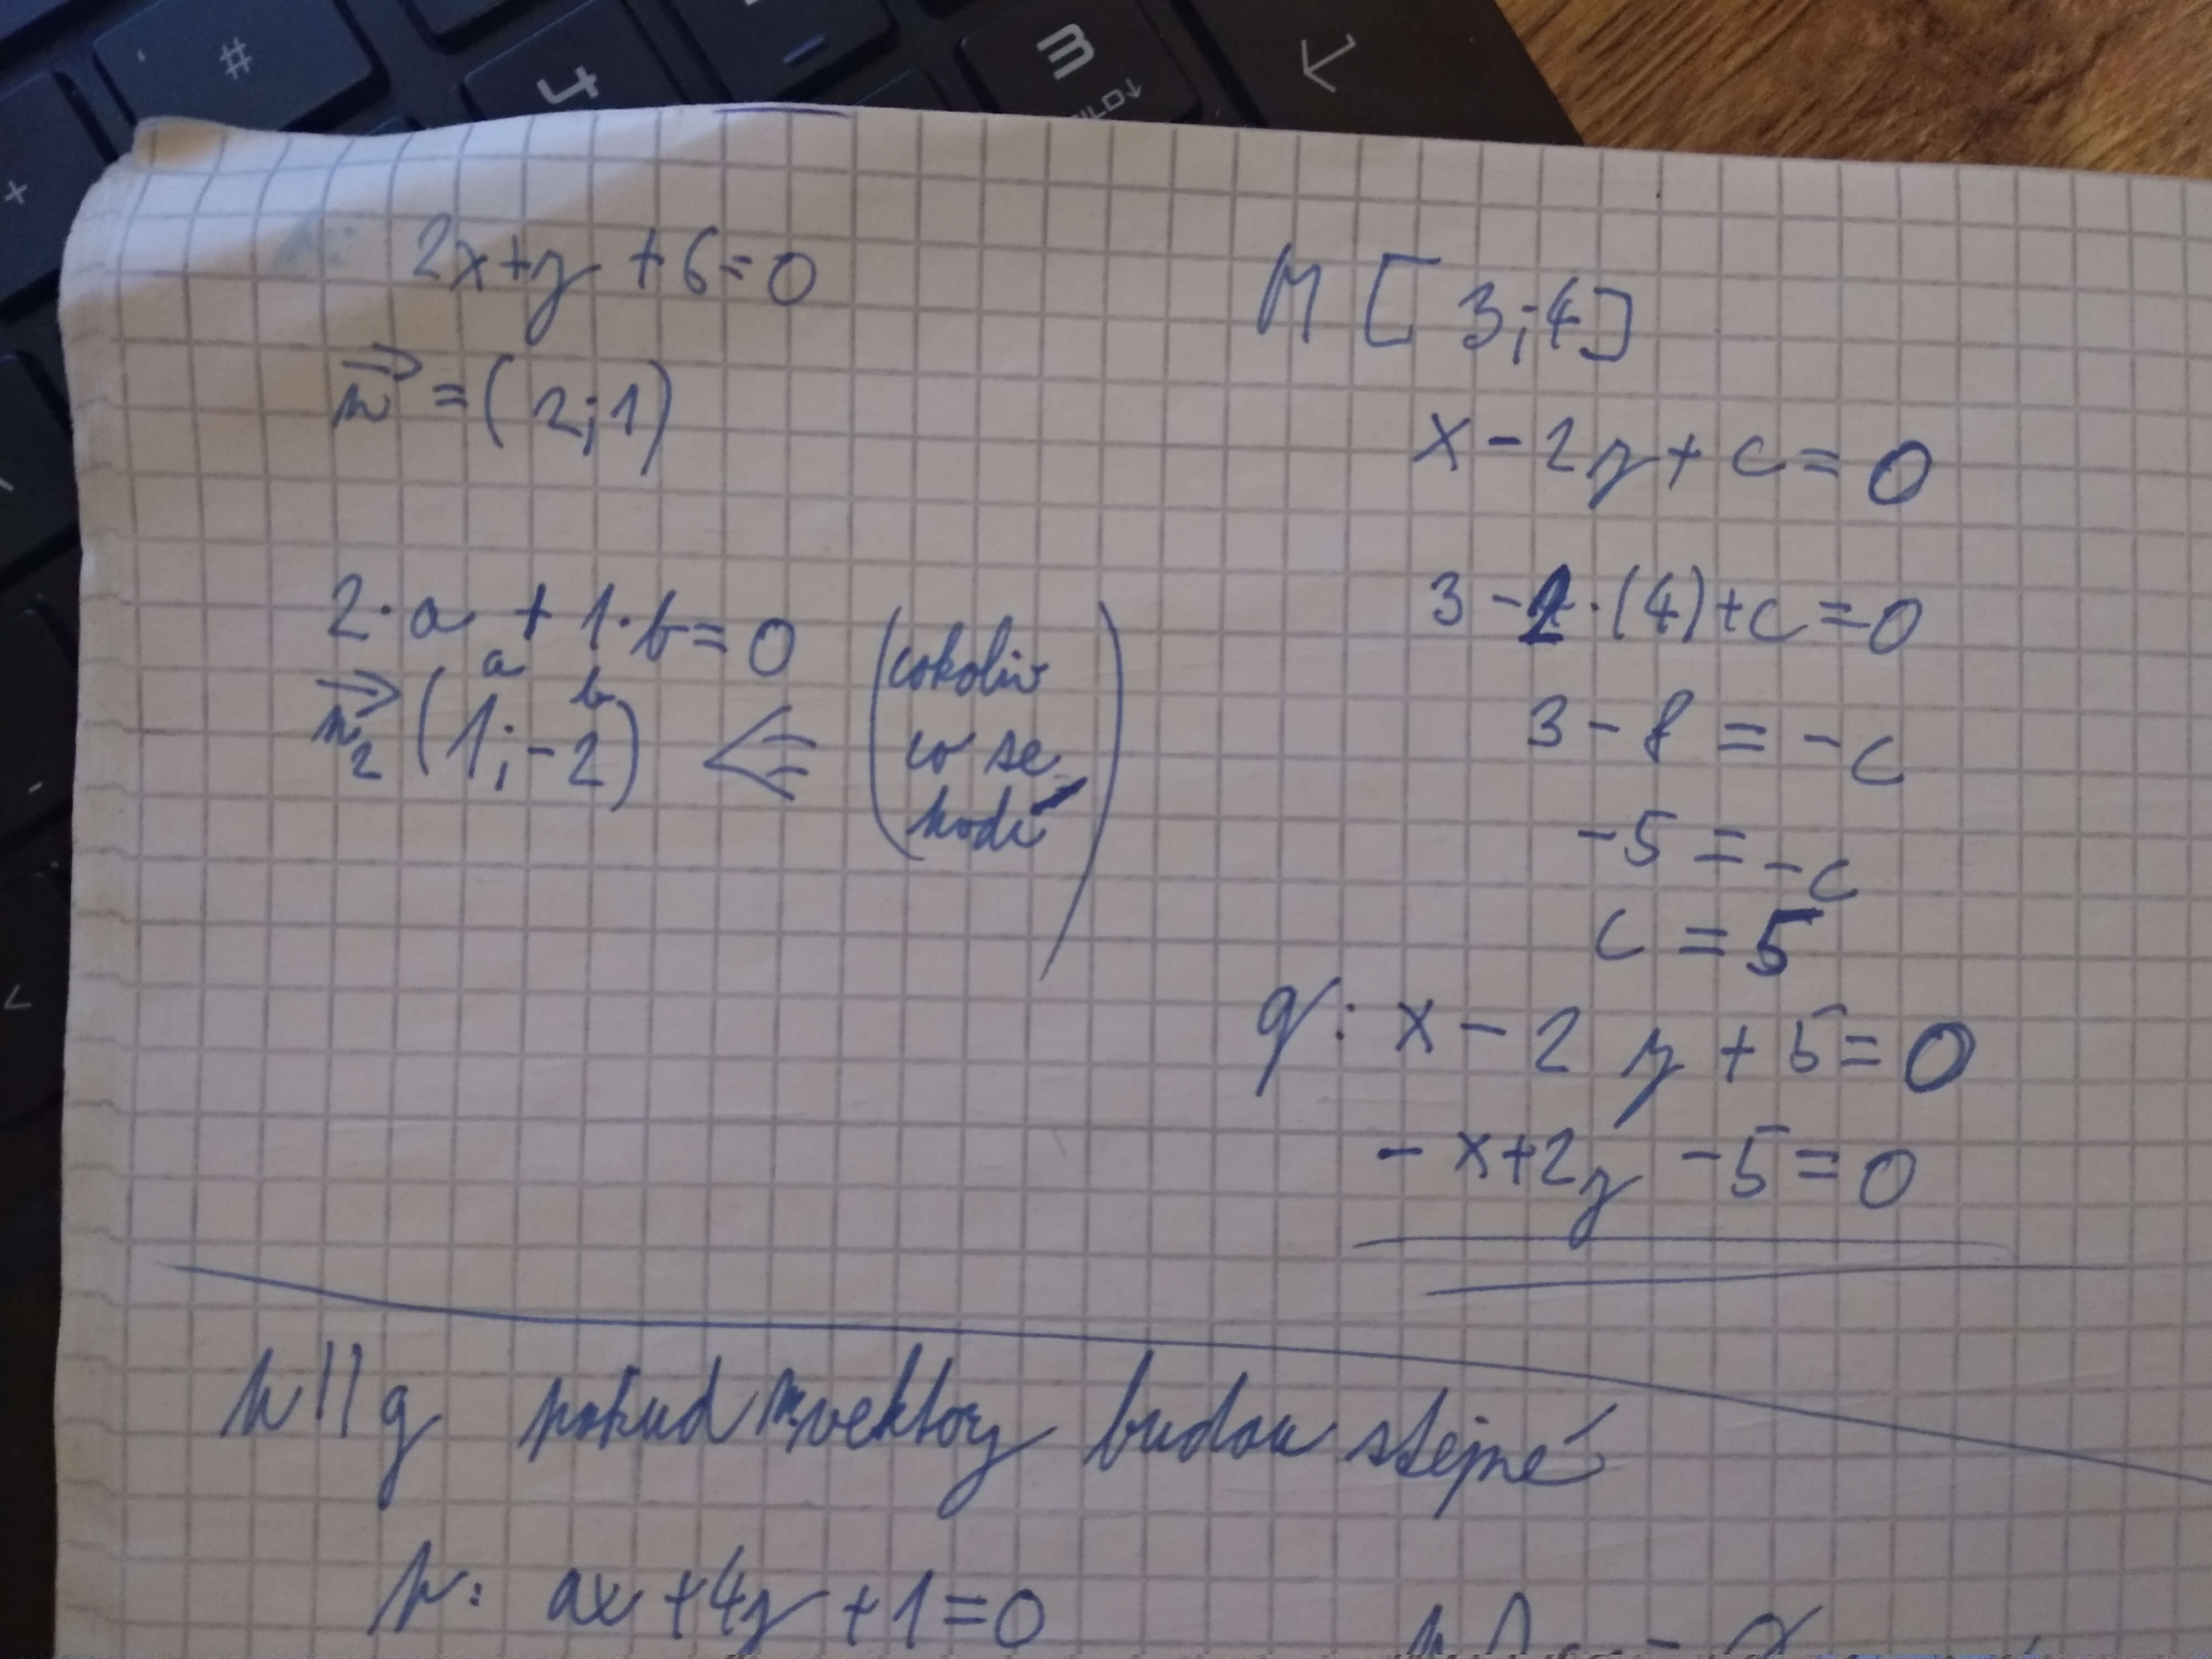 2x+y +6=0
n⃗ = (2;1)
2·a + 1·b = 0
a b
n⃗₂ (1;-2) ⇐ (cokoliv
co se
hodí)
M [3;4]
x - 2y + c = 0
3 - 2·(4) + c = 0
3 - 8 = -c
-5 = -c
c = 5
q: x - 2y + 5 = 0
- x + 2y - 5 = 0
p || q pokud n. vektory budou stejné
p: ax + 4y + 1 = 0
#
4
3